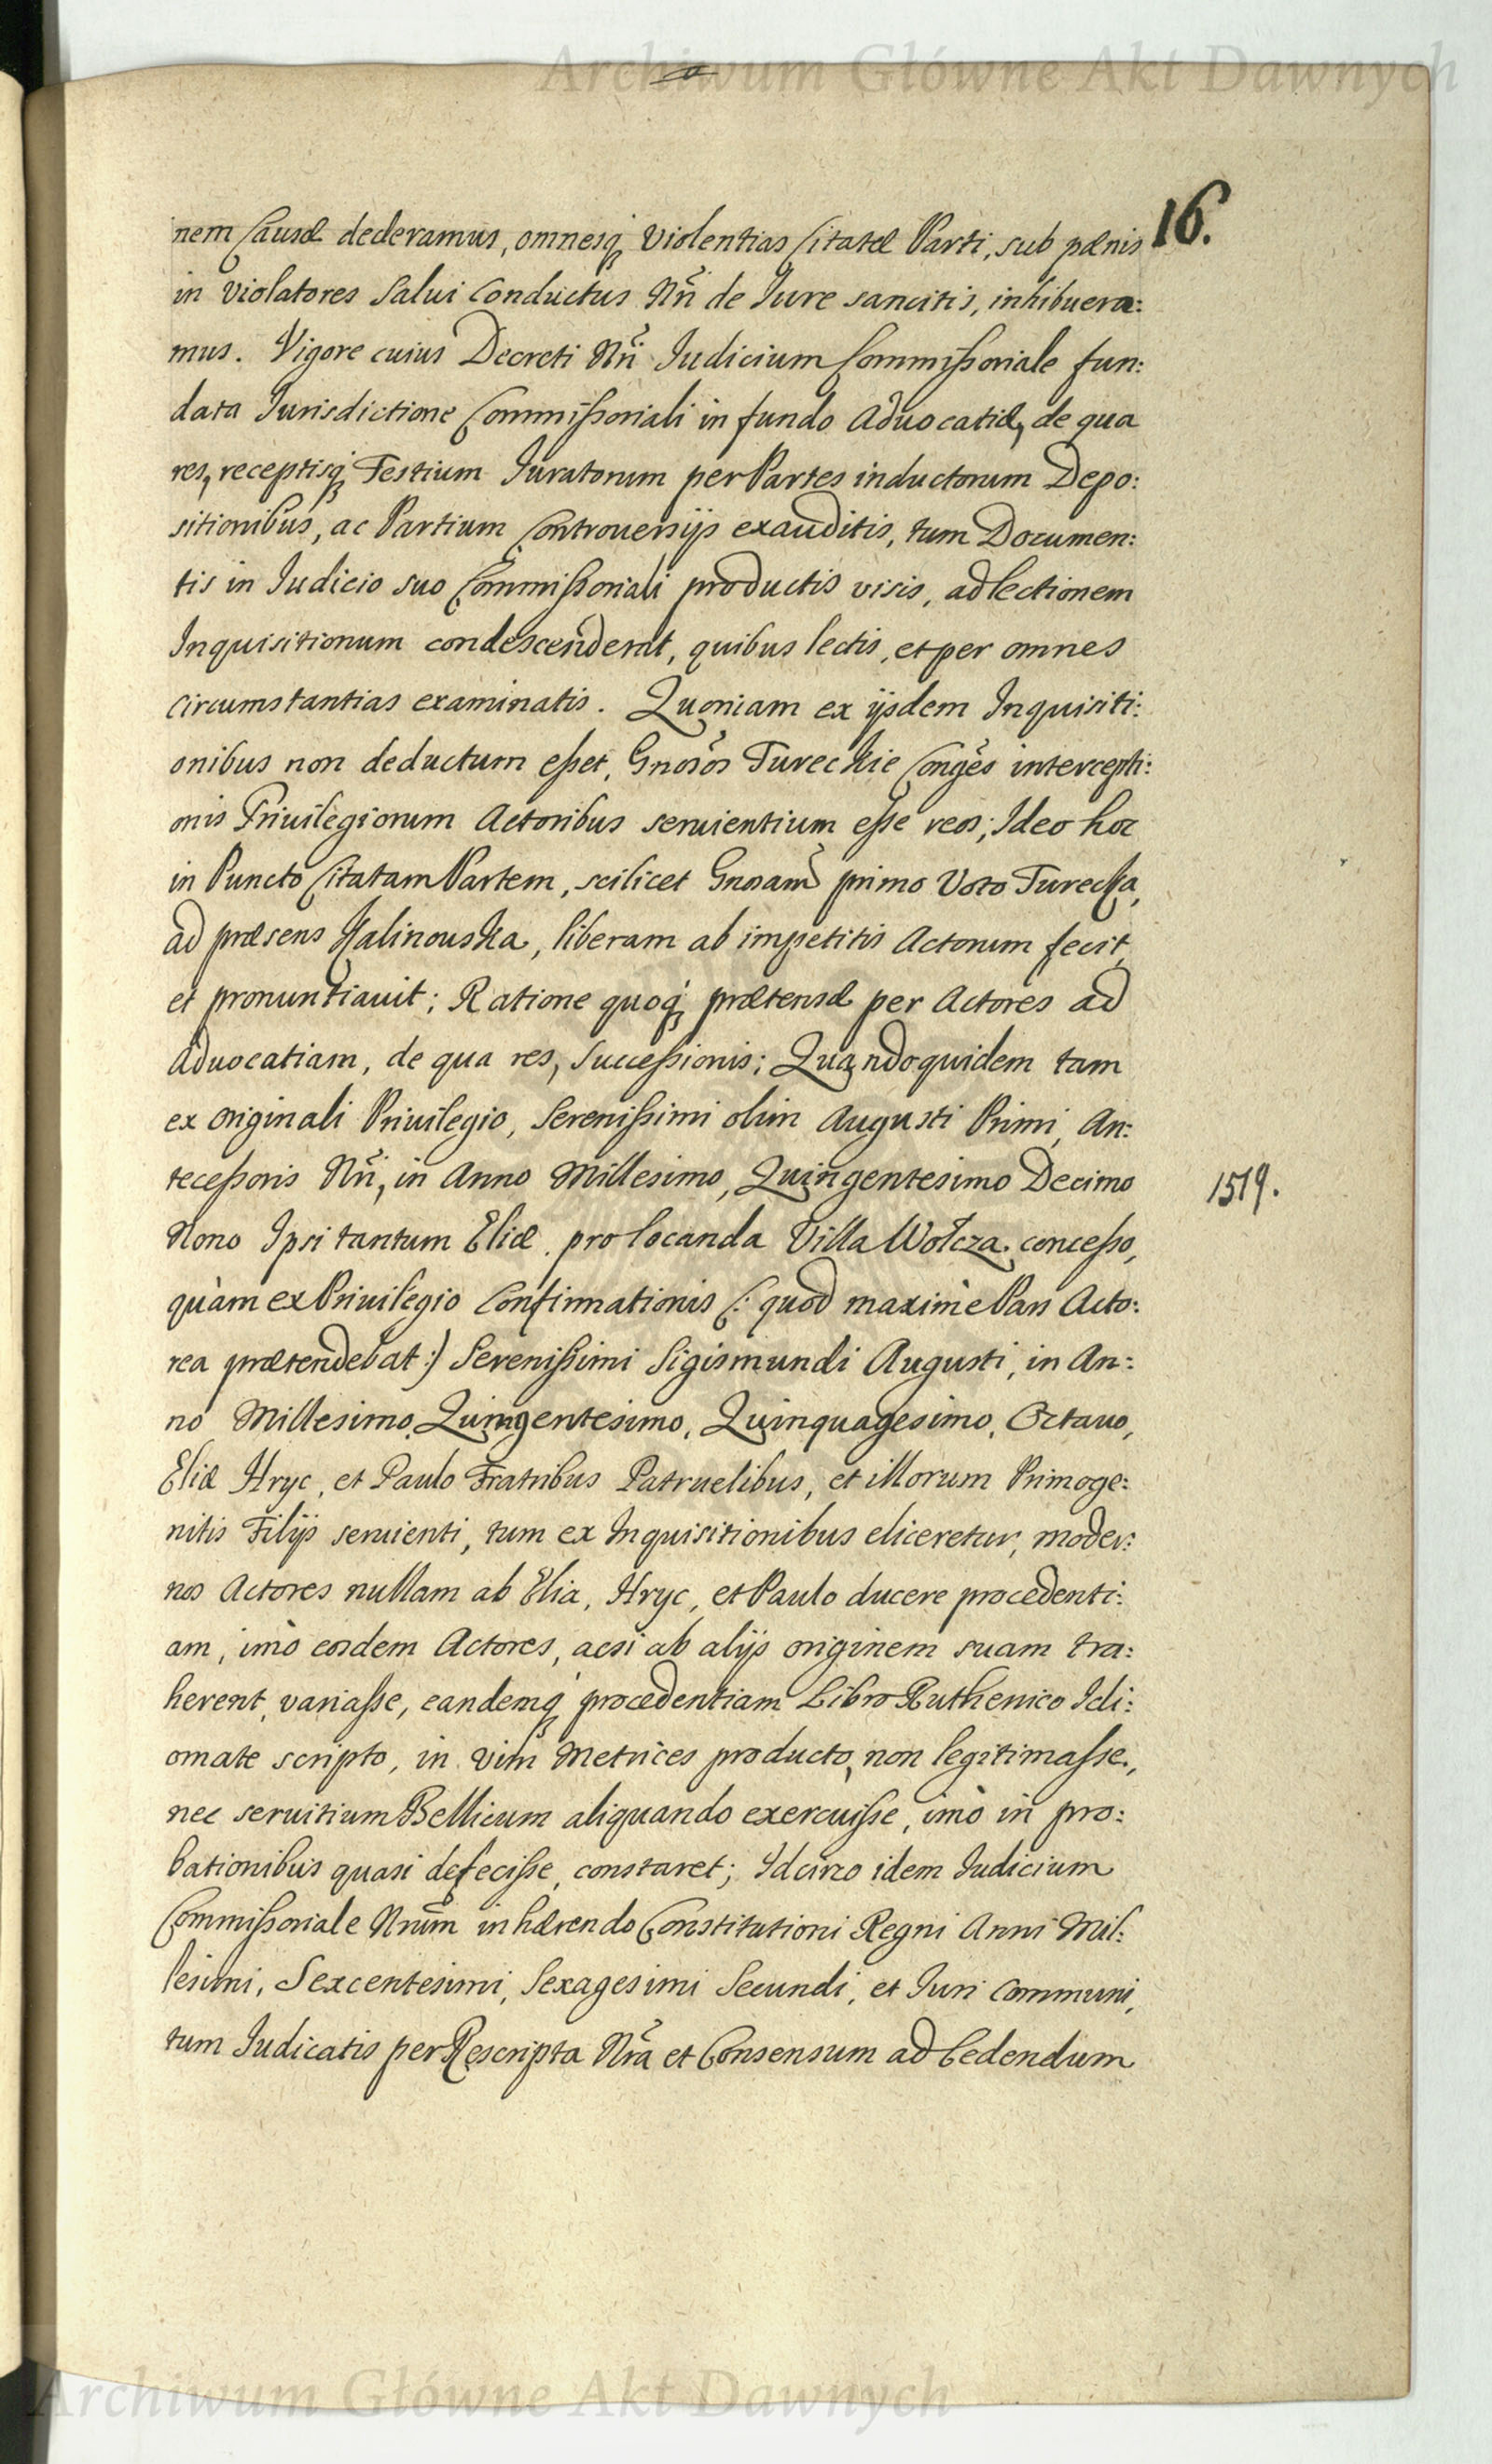 Archiwum Główne Akt Dawnych
16.
nem Causæ dederamus, omnesq; violentias Citatæ Parti, sub pœnis
in violatores Salui Conductus Nri de Jure sancitis, inhibuera:
mus. Vigore cuius Decreti Nri Judicium Commißoriale fun:
data Jurisdictione Commißoriali in fundo Aduocatiæ, de qua
res, receptisq; Testium Juratorum per Partes inductorum Depo:
sitionibus, ac Partium Controuersijs exauditis, tum Documen:
tis in Judicio suo Commißoriali productis visis, ad lectionem
Inquisitionum condescenderat, quibus lectis, et per omnes
circumstantias examinatis. Quoniam ex ijsdem Inquisiti:
onibus non deductum eßet, Gnosos Tureckie Conges intercepti:
onis Priuilegiorum Actoribus seruientium eße reos; Ideo hoc
in Puncto Citatam Partem, scilicet Gnosam primo Voto Turecka,
ad præsens Kalinouska, liberam ab impetitis Actorum fecit,
et pronuntiauit; Ratione quoq; prætensæ per Actores ad
Aduocatiam, de qua res, Succeßionis; Quandoquidem tam
ex originali Priuilegio, Serenißimi olim Augusti Primi, An:
teceßoris Nri, in Anno Millesimo, Quingentesimo Decimo
1519.
Nono Ipsi tantum Eliæ pro locanda Villa Wołcza conceßo,
quàm ex Priuilegio Confirmationis (: quod maximè Pars Acto:
rea prætendebat :) Serenißimi Sigismundi Augusti, in An:
no Millesimo, Quingentesimo, Quinquagesimo, Octauo,
Eliæ Hryc, et Paulo Fratribus Patruelibus, et illorum Primoge:
nitis Filijs seruienti, tum ex Inquisitionibus eliceretur, moder:
nos Actores nullam ab Elia, Hryc, et Paulo ducere procedenti:
am, imò eosdem Actores, acsi ab alijs originem suam tra:
herent, variaße, eandemq; procedentiam Libro Ruthenico Idi:
omate scripto, in vim Metrices producto, non legitimaße,
nec seruitium Bellicum aliquando exercuiße, imò in pro:
bationibus quasi defeciße, constaret; Idcirco idem Judicium
Commißoriale Nrum inhærendo Constitutioni Regni Anni Mil:
lesimi, Sexcentesimi, Sexagesimi Secundi, et Juri communi,
tum Judicatis per Rescripta Nra et Consensum ad Cedendum
Archiwum Główne Akt Dawnych